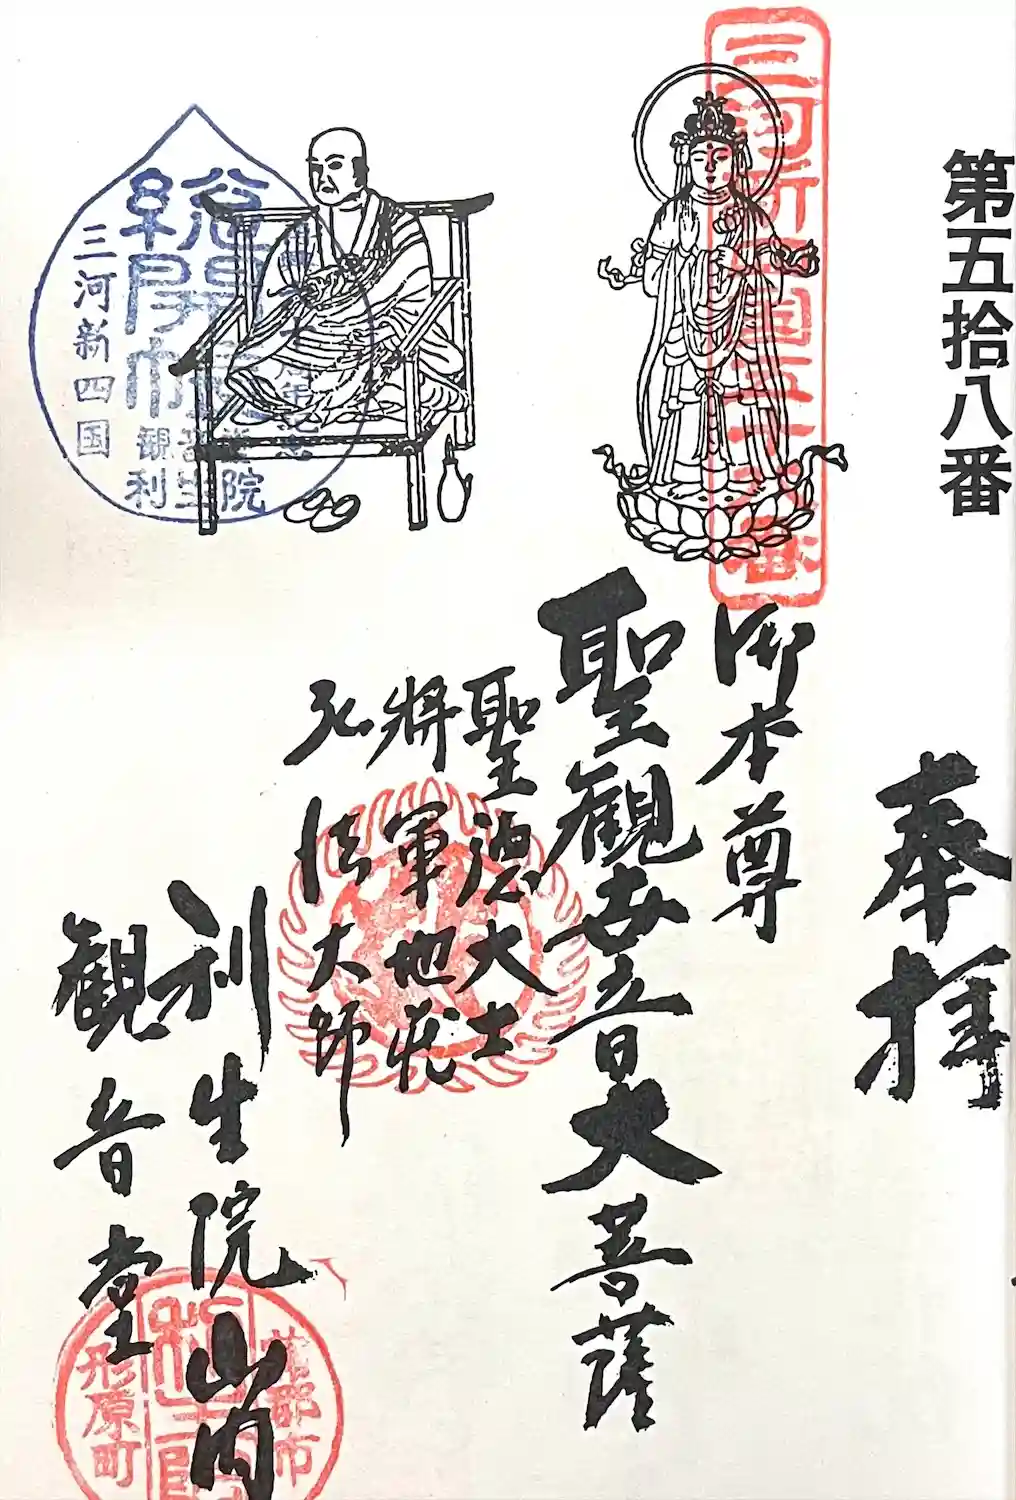 第五拾八番
奉拝
三河新四国五十八番
御本尊
聖観世音大菩薩
聖徳太士
将軍地蔵
弘法大師
利生院山内
観音堂
総開帳
三河新四国
観音堂
利生院
蒲郡市
形原町